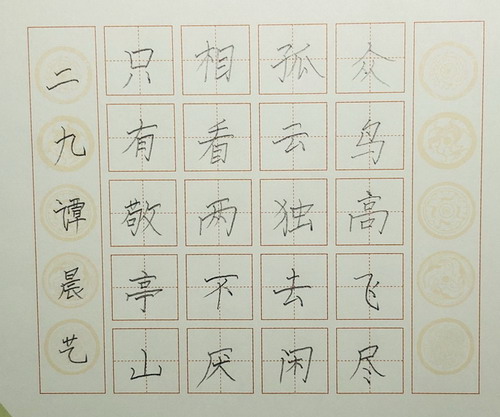 众鸟高飞尽
孤云独去闲
相看两不厌
只有敬亭山
二九谭晨艺